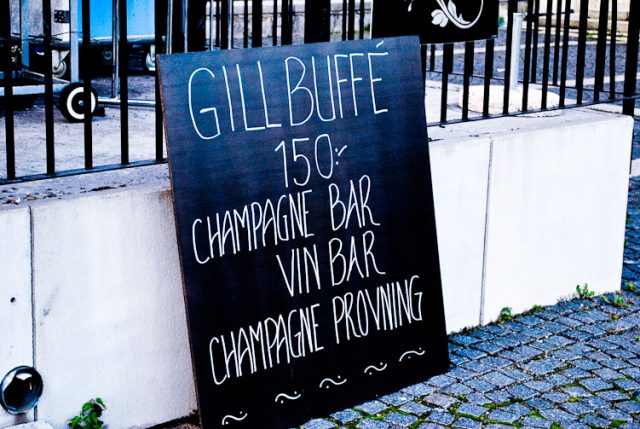 GILLBUFFÉ
150:-
CHAMPAGNE BAR
VIN BAR
CHAMPAGNE PROVNING